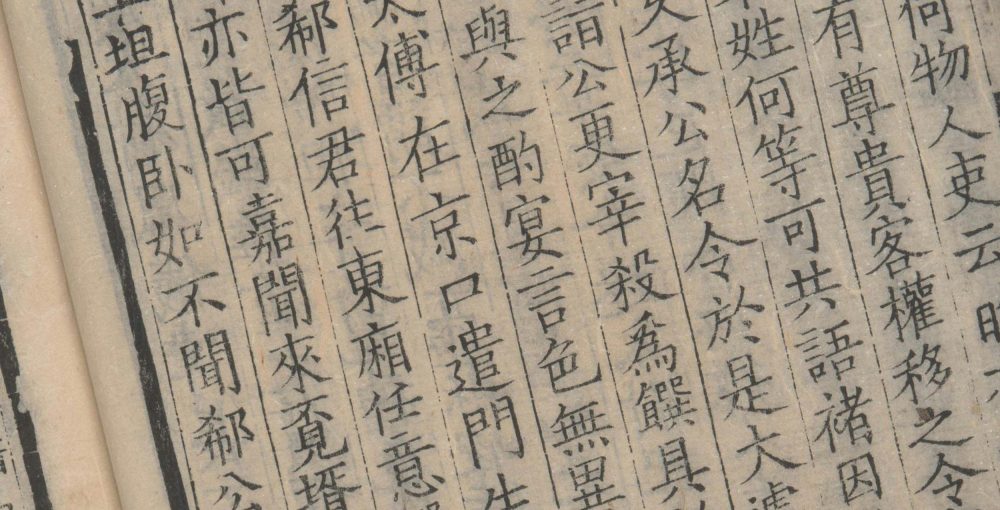 何物人吏云昨
有尊貴客權移之令
姓何等可共語褚因
久承公名令於是大遽
詣公更宰殺為饌具
與之酌宴言色無異
太傅在京口遣門生
郗信君往東廂任意
亦皆可嘉聞來覓壻
坦腹卧如不聞郗公